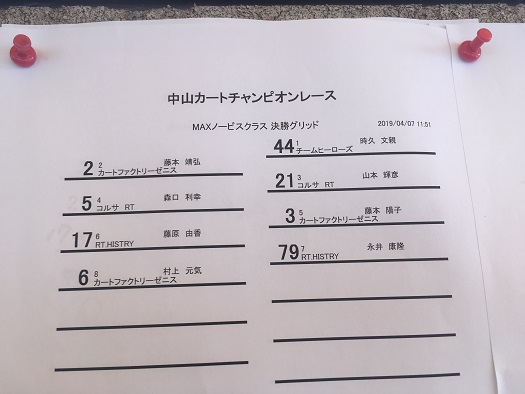 中山カートチャンピオンレース
MAXノービスクラス 決勝グリッド 2019/04/07 11:51
44 1 時久 文親
チームヒーローズ
2 2 藤本 靖弘
カートファクトリーゼニス
21 3 山本 輝彦
コルサ RT
5 4 森口 利幸
コルサ RT
3 5 藤本 陽子
カートファクトリーゼニス
17 6 藤原 由香
RT.HISTRY
79 7 永井 康隆
RT.HISTRY
6 8 村上 元気
カートファクトリーゼニス